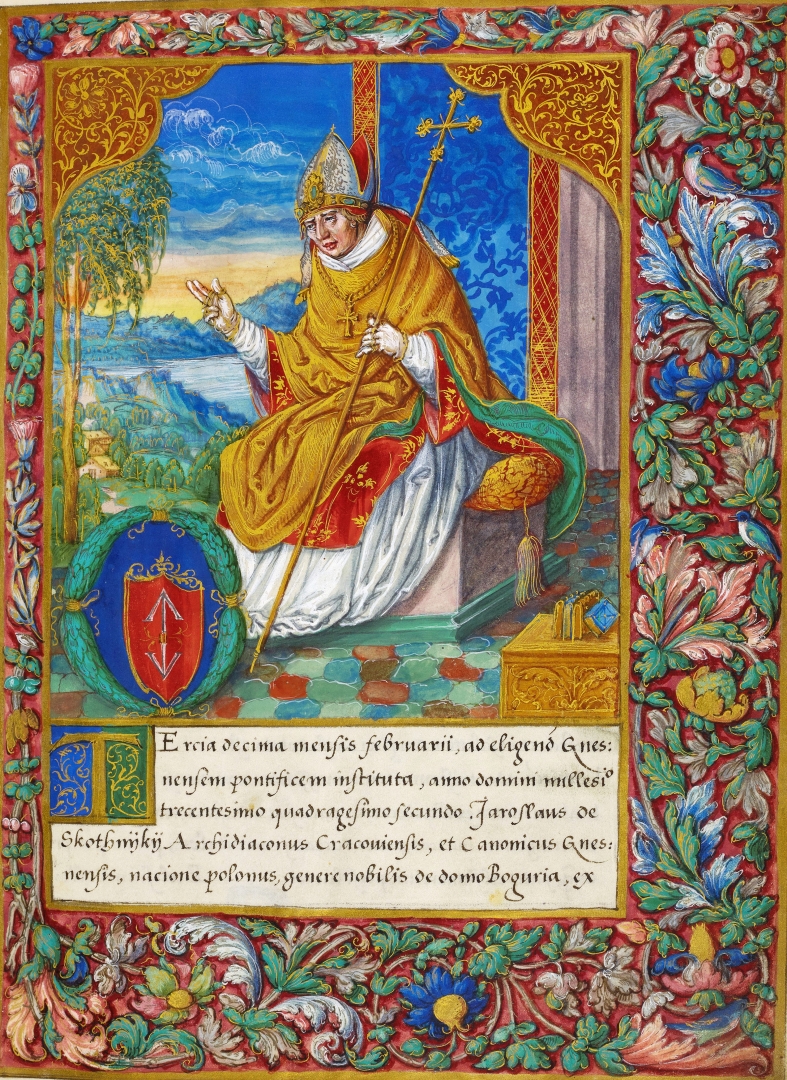 TErcia decima mensis februarii, ad eligend̄ Gnes:
nensem pontificem instituta, anno domini millesi͡o
trecentesimo quadragesimo secundo. Jaroslaus de
Skothnykÿ Archidiaconus Cracouiensis, et Canonicus Gnes:
nensis, nacione polonus, genere nobilis de domo Boguria, ex